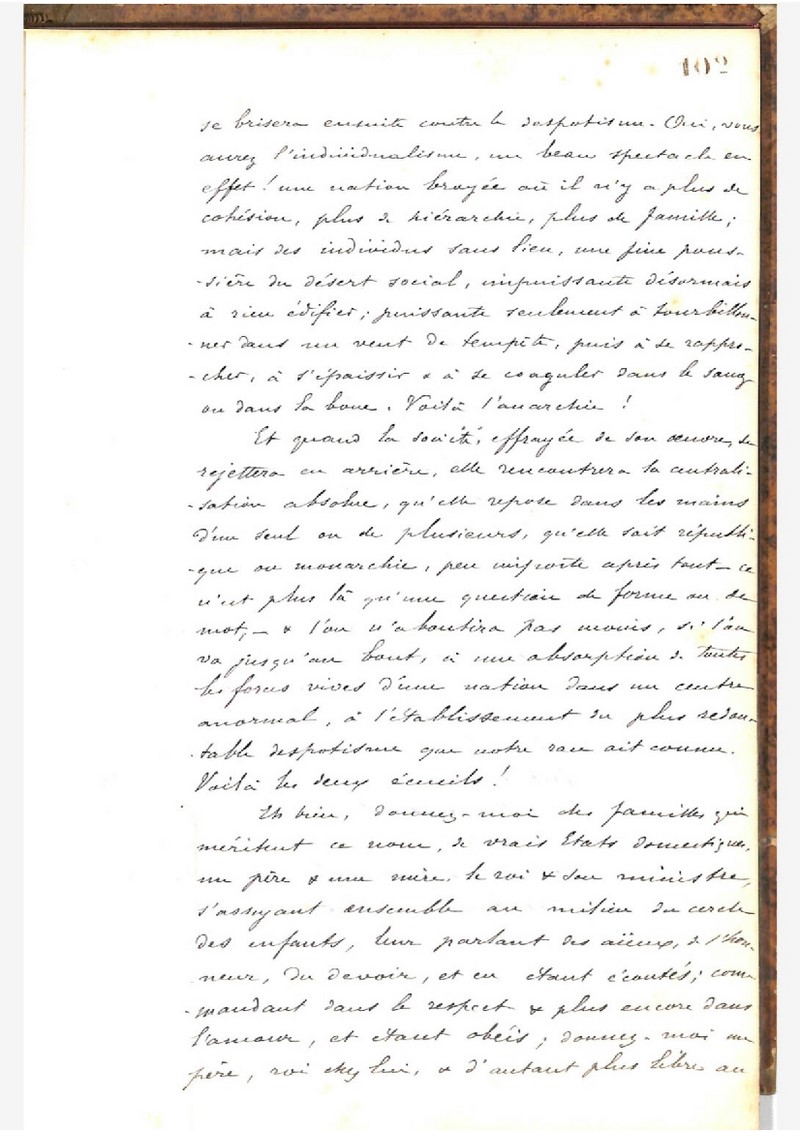 102
se brisera ensuite contre le despotisme. Oui, vous
aurez l'individualisme, un beau spectacle en
effet! une nation broyée où il n'y a plus de
cohésion, plus de hiérarchie, plus de famille;
mais des individus sans lien, une fine pous-
-sière du désert social, impuissante désormais
à rien édifier; puissante seulement à tourbillon-
-ner dans un vent de tempête, puis à se rappro-
-cher, à s'épaissir & à se coaguler dans le sang
ou dans la boue. Voilà l'anarchie!
Et quand la société, effrayée de son œuvre, se
rejettera en arrière, elle rencontrera la centrali-
-sation absolue, qu'elle repose dans les mains
d'un seul ou de plusieurs, qu'elle soit républi-
-que ou monarchie, peu importe après tout — ce
n'est plus là qu'une question de forme ou de
mot, — & l'on n'aboutira pas moins, si l'on
va jusqu'au bout, à une absorption de toutes
les forces vives d'une nation dans un centre
anormal, à l'établissement du plus redou-
-table despotisme que notre race ait connu.
Voilà les deux écueils!
Eh bien, donnez-moi des familles qui
méritent ce nom, de vrais Etats domestiques,
un père & une mère, le roi & son ministre,
s'asseyant ensemble au milieu du cercle
des enfants, leur parlant des aïeux, de l'hon-
neur, du devoir, et en étant écoutés; com-
-mandant dans le respect & plus encore dans
l'amour, et étant obéis; donnez-moi un
père, roi chez lui, & d'autant plus libre au